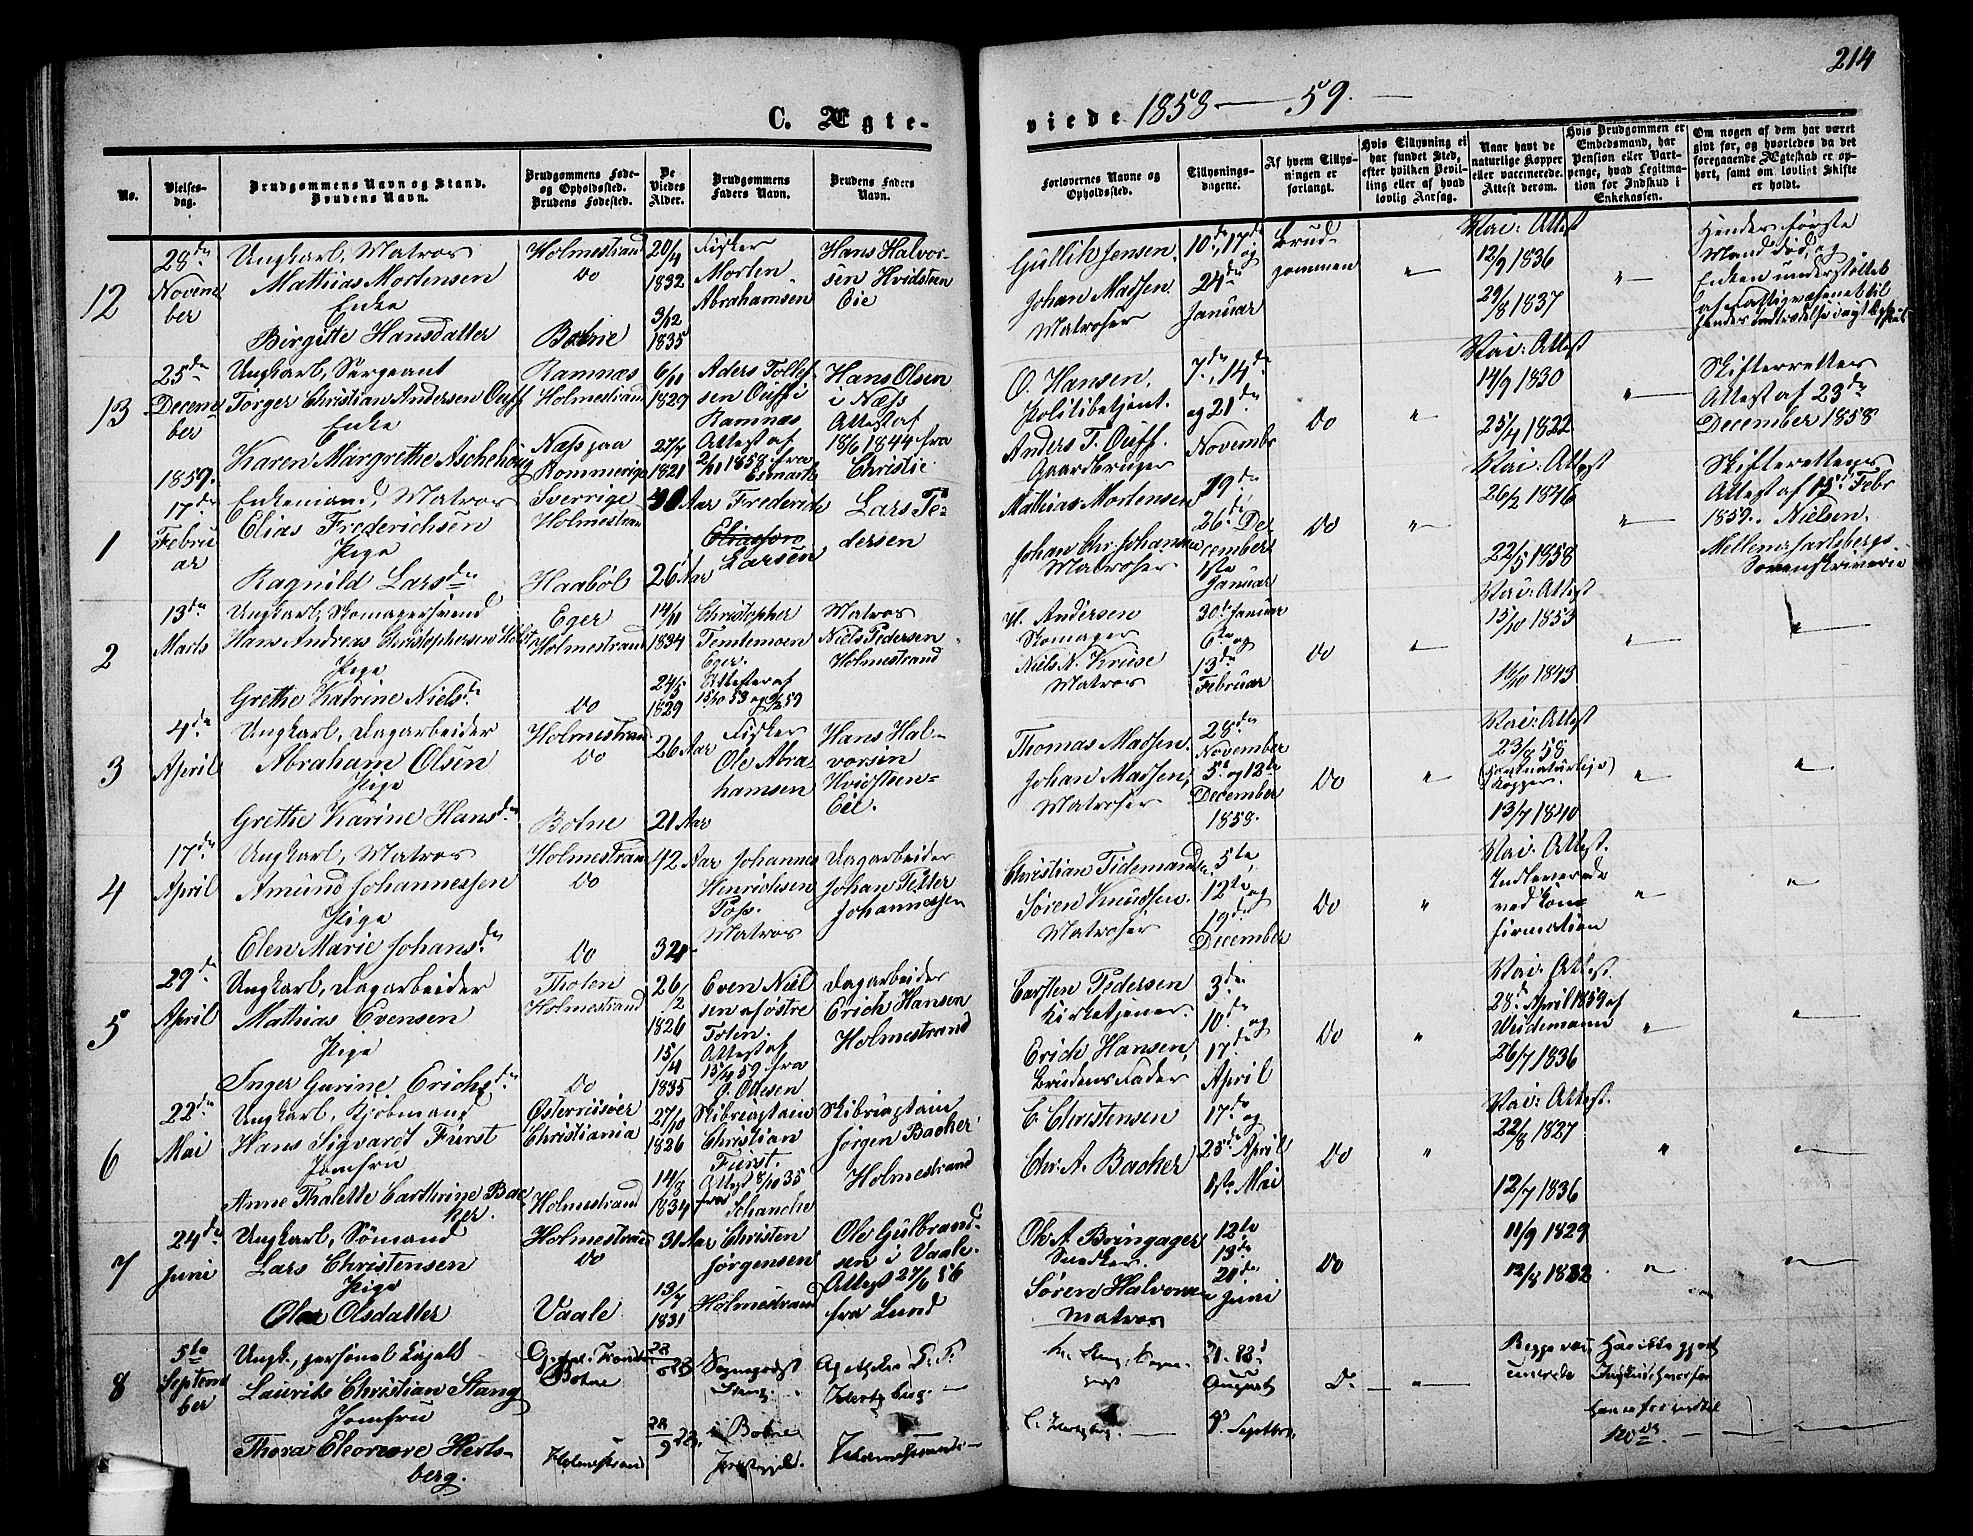 214
C. Ægte-
viede 1858 — 59. —
No.
Vielses-
dag.
Brudgommens Navn og Stand.
Brudens Navn.
Brudgommens Føde-
og Opholdssted.
Brudens Fødested.
De
Viedes
Alder.
Brudgommens
Faders Navn.
Brudens Faders
Navn.
Forlovernes Navne og
Opholdssted.
Tillysnings-
dagene.
Af hvem Tillys-
ningen er
forlangt.
Hvis Tillysning ei
har fundet Sted,
efter hvilken Bevil-
ling eller af hvad
lovlig Aarsag.
Naar havt de
naturlige Kopper
eller vaccinerede.
Attest derom.
Hvis Brudgommen er
Embedsmand, har
Pension eller Vart-
penge, hvad Legitima-
tion for Indskud i
Enkekassen.
Om nogen af dem har været
givt før, og hvorledes da det
foregaaende Ægteskab er op-
hørt, samt om lovligt Skifte
er holdt.
12
28de
Novem
ber
Ungkarl, Matros
Mathias Mortensen
Enke
Birgitte Hansdatter
Holmestrand
Do
Botne
20/4
1832
3/12
1835
Fisker
Morten
Abrahamsen
Hans Halvor-
sen Hvidsteen
Eie
Gullik Jensen.
Johan Madsen.
Matroser
10de, 17de
og
24de
Januar
Brud-
gommen
"
Vac: Attest
12/9 1836
29/8 1837
"
Hendes første
Mand død, og
Enken understøttet
af Fattigvæsenet til
13
25de
Decem
ber
Ungkarl, Sergeant
Torger Christian Andersen Ouff
Enke
Karen Margrethe Aschehoug
Ramnæs
Holmestrand
Næs paa
Rommerige
6/11
1829
27/7
1821
Aders Tollef
sen Ouff i
Ramnæs
Attest af
2/11 1858 fra
Esmark
Hans Olsen
i Næss
Attest af
18/6 1844 fra
Christie
O. Hansen,
Politibetjent.
Anders T. Ouff.
Gaardbruger
7de, 14de
og 21de
Novembr
Do
"
Vac: Attest
14/9 1830
25/4 1822
"
Skifterettens
Attest af 23de
December 1858
1859.
1
17de
Febru
ar
Enkemand, Matros
Elias Frederichsen
Pige
Ragnild Larsdr
Sverrige
Holmestrand
Haabøl
Aar
26 Aar
Frederick
Larsen
Lars Pe-
dersen
Mathias Mortensen
Johan Chr. Johansen
Matroser
19de
26de De
cember
1ste
Januar
Do
"
Vac: Attest
26/2 1846
22/5 1858
"
Skifterettens
Attest af 15de Febr
1859. Nielsen,
Mellem Jarlsbergs
Sorenskriverie
2
13de
Marts
Ungkarl, Skomagersvend
Hans Andreas Christophersen
Pige
Grethe Katrine Nielsdr
Eger
Holmestrand
Do
14/11
1834
24/5
1829
Christopher
Temtemoen
Eger.
Attester af
Matros
Niels Pedersen
Holmestrand
H. Andersen
Skomager
Niels N. Kruse
Matros
30te Januar
6te og
13de
Februar
Do
"
Vac: Attest
15/10 1853
16/10 1843
"
3
4de
April
Ungkarl, Dagarbeider
Abraham Olsen
Pige
Grethe Karine Hansdr
Holmestrand
Do
Botne
26 Aar
21 Aar
Fisker
Ole Abra-
hamsen
Hans Hal-
vorsen
Hvidsteen-
Eie.
Thomas Madsen.
Johan Madsen,
Matroser
28de
November
5te og 12te
December
1858.
Do
"
Vac: Attest
23/8 58
naturlige
Kopper.
13/7 1840
"
"
4
17de
April
Ungkarl, Matros
Amund Johannessen
Pige
Elen Marie Johansdr
Holmestrand
Do
Do
42 Aar
32
Johannes
Henrichsen
Poss.
Matros
Dagarbeider
Johan Petter
Johannessen
Christian Tidemand
Søren Knudsen.
Matroser
5te,
12te og
19de
December
Do
"
Vac: Attest.
Indleverede
ved Con-
firmation
"
"
5
29de
April
Ungkarl, Dagarbeider
Mathias Evensen
Pige
Inger Gurine Erichsdr
Thoten
Holmestrand
Do
26/2
1826
15/4
1835
Even Niel
sen af østre
Toten.
Attest af
15/4 59 fra
G. Ottesen
Dagarbeider
Erich Hansen
Holmestrand
Carsten Pedersen
Kirketjener.
Erich Hansen,
Brudens Fader
3de
10de
og
17de
April
Do
"
Vac: Attest.
28de April 1859 af
Widemann
26/7 1836
"
"
6
22de
Mai
Ungkarl, Kjøbmand
Hans Sigvardt Fürst
Jomfru
Anne Thalette Carthrine Bac
ker.
Østerriisøer
Christiania
Holmestrand
27/10
1826
14/8
1834
Skibscaptain
Christian
Fürst.
Attest 8/10 35
fra Schanche
Skibscaptain
Jørgen Backer
Holmestrand
C. Christensen
Chr. A. Backer
17de
og
25de April
1ste Mai
Do
"
Vac: Attest.
22/8 1827
12/7 1836
"
"
7
24de
Juni
Ungkarl, Sømand
Lars Christensen
Pige
Olea Olsdatter
Holmestrand
Do
Vaale
31 Aar
13/7
1831
Christen
Jørgensen
Holmestrand
Ole Gulbrand-
sen i Vaale.
Attest 27/6 56
fra Lund
Ole A. Bringager
Snedker.
Søren Halvorsen
Matros
12te
13de
20de
Juni
Do
11/9 1829
12/8 1832
"
"
8
5te
Septem
ber
Ungk., personel Capel.
Laurits Christian Stang
Jomfru
Thora Eleonore Herts-
berg.
Botne
Holmestrand
28
28
9
Sogneprest
Stang.
i Botne
Præstegjeld.
Apotheker
Hertzberg.
Holmestrand
21. 28de
August
4de Septbr.
Do
"
Begge vac-
cinerede